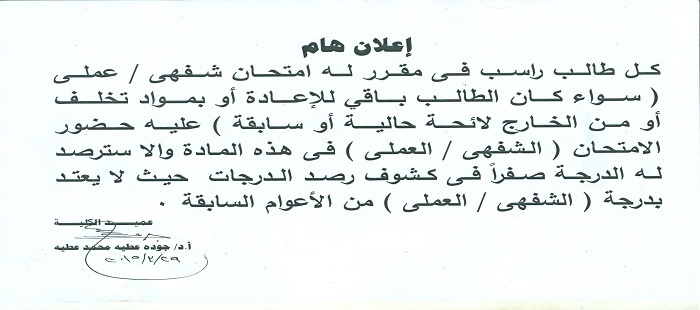 إعلان هام
كل طالب راسب فى مقرر له امتحان شفهى / عملى
( سواء كان الطالب باقي للإعادة أو بمواد تخلف
أو من الخارج لائحة حالية أو سابقة ) عليه حضور
الامتحان ( الشفهى / العملى ) فى هذه المادة والا سترصد
له الدرجة صفراً فى كشوف رصد الدرجات حيث لا يعتد
بدرجة ( الشفهى / العملى ) من الأعوام السابقة .
عميد الكلية
أ.د/ جوده عطيه محمد عطيه